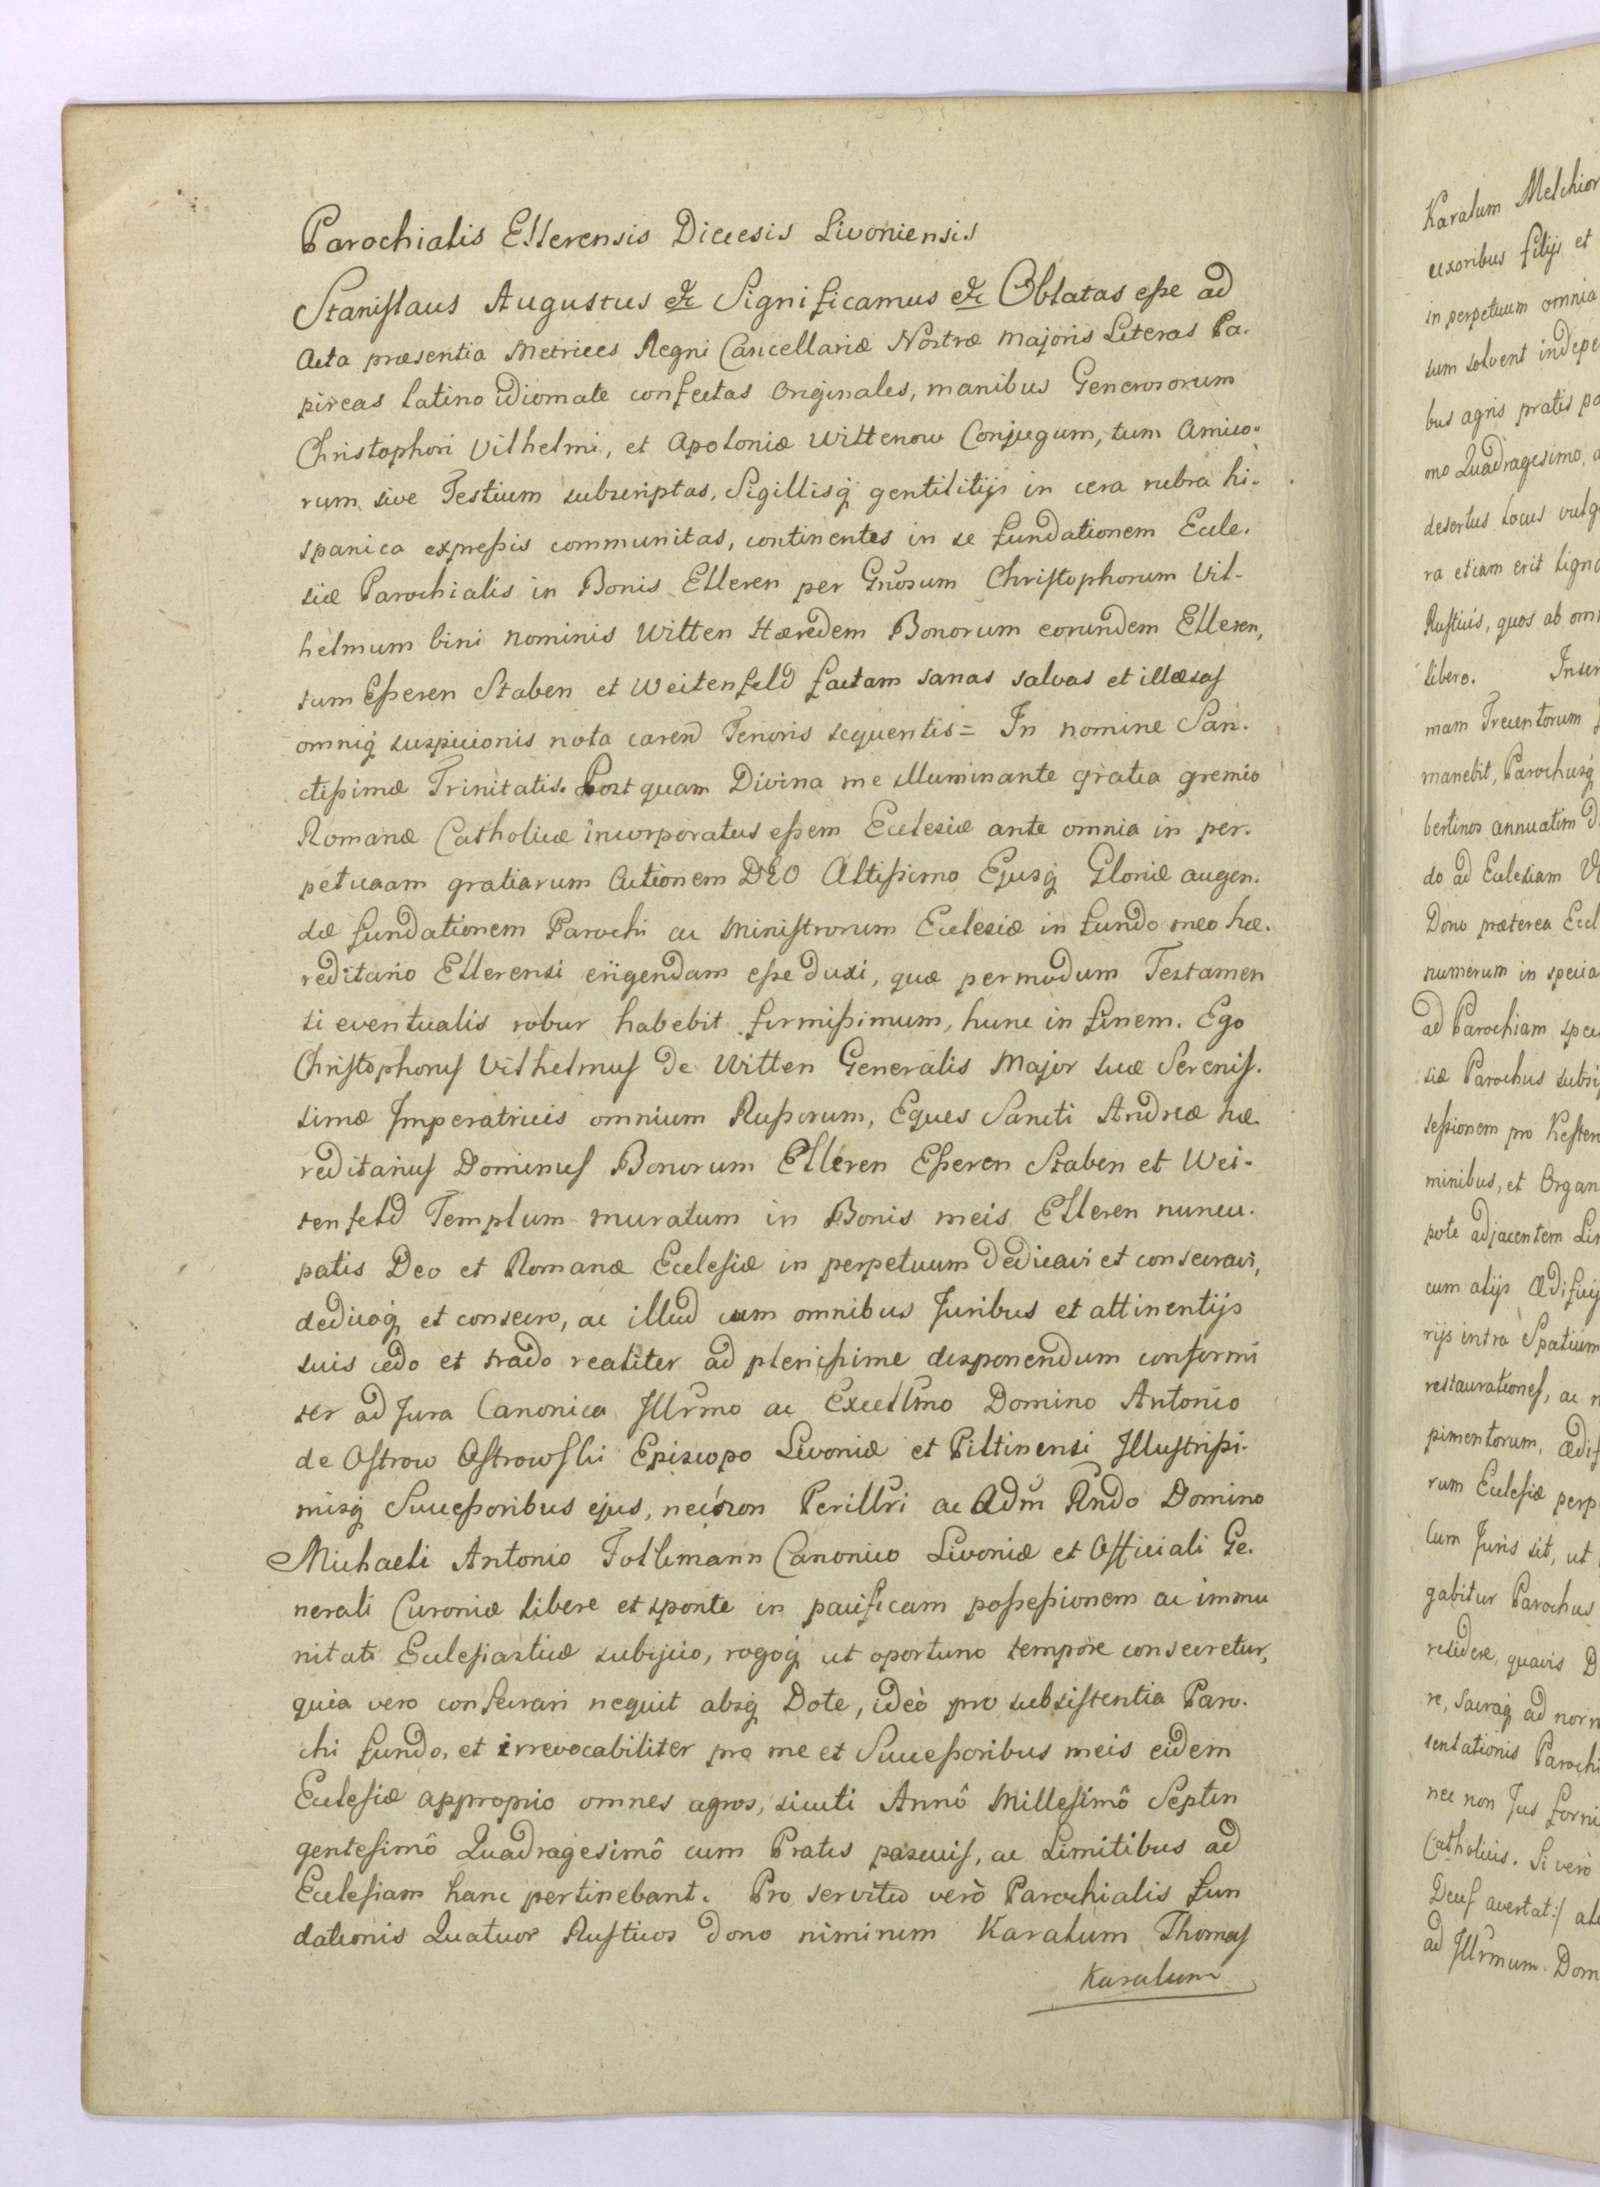 Parochialis Ellerensis Diœcesis Livoniensis
Stanislaus Augustus &c Significamus &c Oblatas esse ad
Acta præsentia Metrices Regni Cancellariæ Nostræ Majoris Literas Pa-
pireas latino idiomate confectas originales, manibus Generosorum
Christophori Vilhelmi, et Apoloniæ Wittenow Conjugum, tum Amico-
rum sive Testium subscriptas, Sigillisq; gentilitijs in cera rubra hi-
spanica expressis communitas, continentes in se fundationem Eccle-
siæ Parochialis in Bonis Elleren per Gnosum Christophorum Vil-
helmum bini nominis Witten Hæredem Bonorum eorundem Elleren,
tum Esseren Staben et Weitenfeld factam sanas salvas et illæsas
omniq; suspicionis nota caren Tenoris sequentis = In nomine San-
ctissimæ Trinitatis. Postquam Divina me illuminante gratia gremio
Romanæ Catholicæ incorporatus essem Ecclesiæ ante omnia in per-
petuaam gratiarum Actionem DEO Altissimo Ejusq; Gloriæ augen-
dæ fundationem Parochi ac Ministrorum Ecclesiæ in fundo meo hæ-
reditario Ellerensi erigendam esse duxi, quæ permodum Testamen
ti eventualis robur habebit firmissimum, hunc in finem. Ego
Christophorus Vilhelmus de Witten Generalis Major suæ Serenis-
simæ Imperatricis omnium Russorum, Eques Sancti Andreæ hæ-
reditarius Dominus Bonorum Elleren Esseren Staben et Wei-
tenfeld Templum muratum in Bonis meis Elleren nuncu-
patis Deo et Romanæ Ecclesiæ in perpetuum dedicavi et consecravi,
dedicoq; et consecro, ac illud cum omnibus Juribus et attinentijs
suis cedo et trado realiter ad plenissime disponendum conformi
ter ad Jura Canonica Illrmo ac Excellmo Domino Antonio
de Ostrow Ostrowski Episcopo Livoniæ et Piltinensi Illustrissi-
misq; Successoribus ejus, necnon Perillri ac Adm Rndo Domino
Michaeli Antonio Folkmann Canonico Livoniæ et Officiali Ge-
nerali Curoniæ libere et sponte in pacificam possessionem ac immu
nitati Ecclesiasticæ subijcio, rogoq; ut oportuno tempore consecretur,
quia vero consecrari nequit absq; Dote, ideò pro subsistentia Paro-
chi fundo, et irrevocabiliter pro me et Successoribus meis eidem
Ecclesiæ approprio omnes agros, sicuti Annô Millesimô Septin
gentesimô Quadragesimô cum Pratis pascuis, ac Limitibus ad
Ecclesiam hanc pertinebant. Pro servitio verò Parochialis fun
dationis Quatuor Rusticos dono niminum Karalum Thomas
Karalum
Karalum Melchior
uxoribus filijs et
in perpetuum omnia
sum solvent indepe
bus agris pratis pa
mo Quadragesimo, a
desertus locus vulg
ra etiam erit ligna
Rusticis, quos ab omn
libero. Inser
mam Trecentorum
manebit, Parochusq;
bertinos annuatim d
do ad Ecclesiam
Dono præterea Eccl
numerum in specia
ad Parochiam spec
siæ Parochus subsi
sessionem pro
minibus, et Organ
pote adjacentem
cum alijs ædificij
rijs intra Spatium
restaurationes, ac
pimentorum, ædif
rum Ecclesiæ perp
Cum Juris sit, ut
gabitur Parochus
residere, quavis D
re, Sacraq; ad norm
sentationis Parochi
nec non Jus
Catholicis. Si verò
Deus avertat:/
ad Illrmum Dom